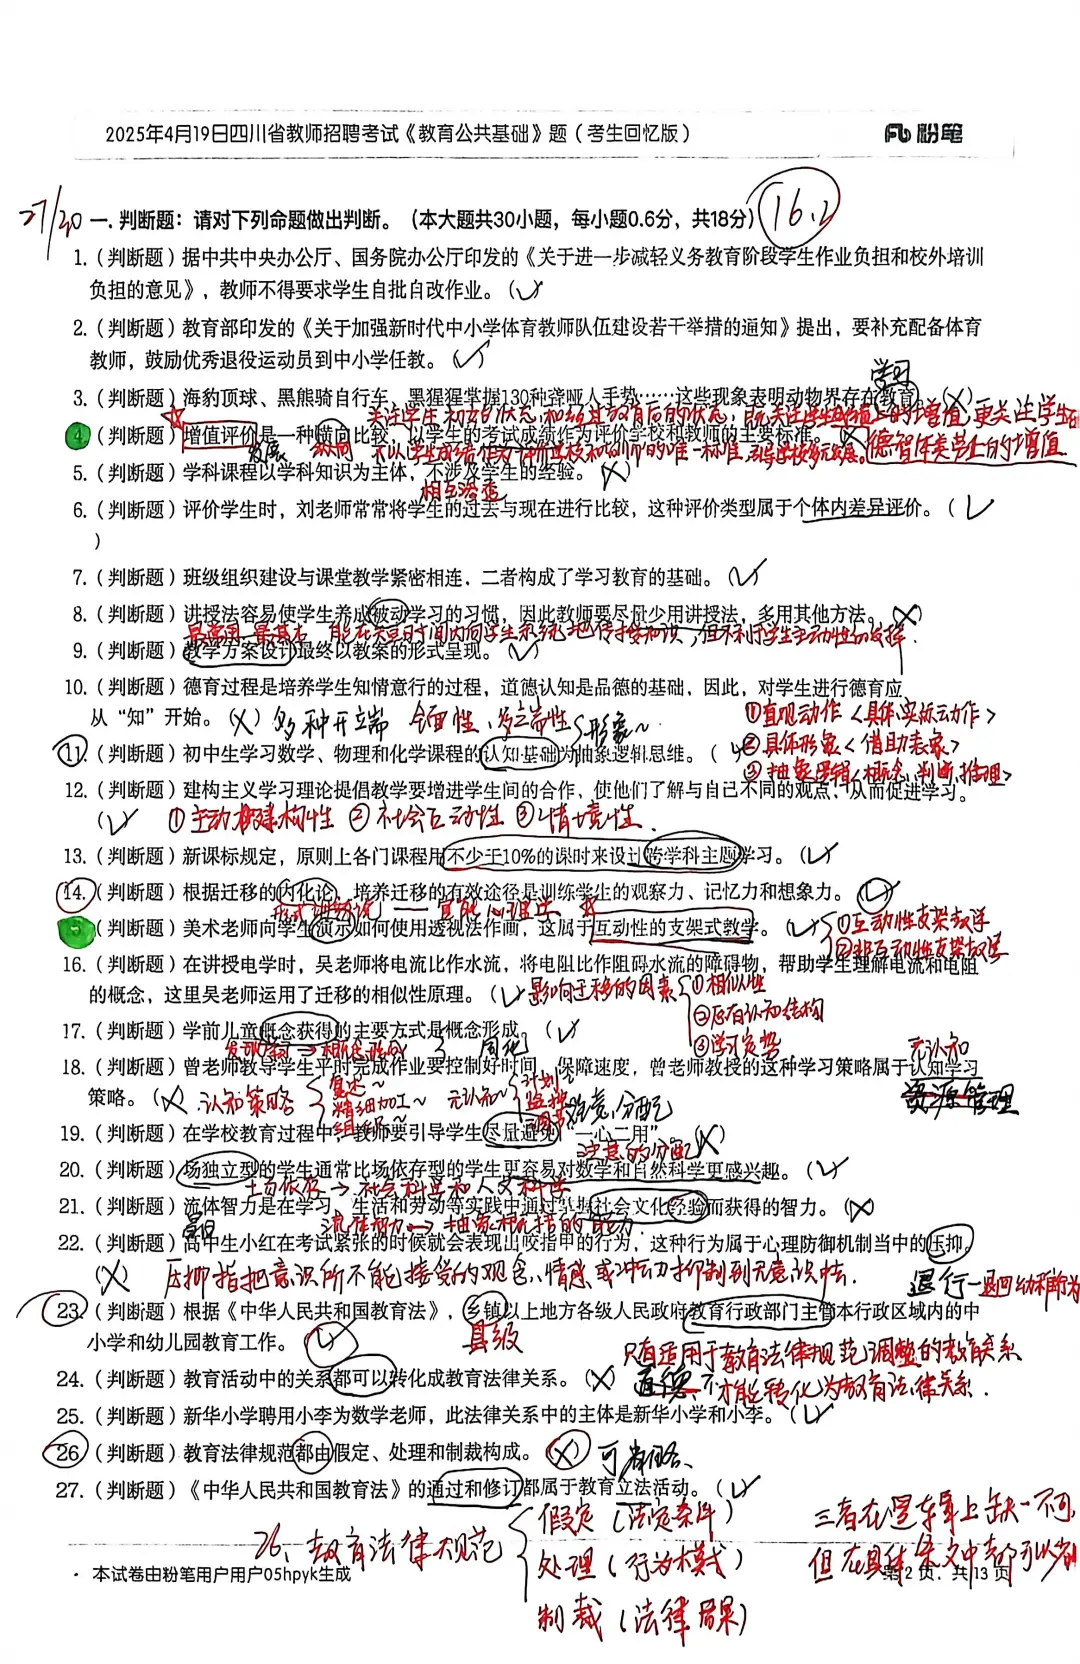 2025年4月19日四川省教师招聘考试《教育公共基础》题（考生回忆版）
粉笔
27/30
一. 判断题：请对下列命题做出判断。（本大题共30小题，每小题0.6分，共18分）
16.2
1.（判断题）据中共中央办公厅、国务院办公厅印发的《关于进一步减轻义务教育阶段学生作业负担和校外培训
负担的意见》，教师不得要求学生自批自改作业。（✓）
2.（判断题）教育部印发的《关于加强新时代中小学体育教师队伍建设若干举措的通知》提出，要补充配备体育
教师，鼓励优秀退役运动员到中小学任教。（✓）
学习
3.（判断题）海豹顶球、黑熊骑自行车、黑猩猩掌握130种聋哑人手势……这些现象表明动物界存在教育。（X）
关注学生初始的状态和接受教育后的状态，既关注学生
的增值，更关注学生在
4.（判断题）增值评价是一种横向比较，以学生的考试成绩作为评价学校和教师的主要标准。（X）
发展 纵向 不以学生成绩作为评价学校和教师的唯一标准
德智体美劳上的增值
5.（判断题）学科课程以学科知识为主体，不涉及学生的经验。（X）
相互渗透
6.（判断题）评价学生时，刘老师常常将学生的过去与现在进行比较，这种评价类型属于个体内差异评价。（✓
）
7.（判断题）班级组织建设与课堂教学紧密相连，二者构成了学习教育的基础。（✓）
8.（判断题）讲授法容易使学生养成被动学习的习惯，因此教师要尽量少用讲授法，多用其他方法。（X）
最常用 最基本 能在短时间内向学生系统地传授知识，但不利于学生主动性的发挥.
9.（判断题）教学方案设计最终以教案的形式呈现。（✓）
10.（判断题）德育过程是培养学生知情意行的过程，道德认知是品德的基础，因此，对学生进行德育应
从“知”开始。（X）多种开端 全面性、多端性
形象~
①直观动作<具体、实际动作>
②具体形象<借助表象>
③抽象逻辑<概念、判断、推理>
11.（判断题）初中生学习数学、物理和化学课程的认知基础为抽象逻辑思维。（
12.（判断题）建构主义学习理论提倡教学要增进学生间的合作，使他们了解与自己不同的观点，从而促进学习。
（✓） ①主动建构性 ②社会互动性 ③情境性.
13.（判断题）新课标规定，原则上各门课程用不少于10%的课时来设计跨学科主题学习。（✓）
14.（判断题）根据迁移的内化论，培养迁移的有效途径是训练学生的观察力、记忆力和想象力。（✓）
形式训练说 —— 官能心理学
15.（判断题）美术老师向学生演示如何使用透视法作画，这属于互动性的支架式教学。（✓）
①互动性支架教学
②非互动性支架教学
16.（判断题）在讲授电学时，吴老师将电流比作水流，将电阻比作阻碍水流的障碍物，帮助学生理解电流和电阻
的概念，这里吴老师运用了迁移的相似性原理。（✓）影响迁移的因素
①相似性
②原有认知结构
③学习定势
17.（判断题）学前儿童概念获得的主要方式是概念形成。（✓）
同化
元认知
18.（判断题）曾老师教导学生平时完成作业要控制好时间、保障速度，曾老师教授的这种学习策略属于认知学习
策略。（X）认知策略 复述~ 精细加工~ 组织~ 元认知~ 计划 监控 调节
资源管理
19.（判断题）在学校教育过程中，教师要引导学生尽量避免“一心二用”。（X）
注意的分配
20.（判断题）场独立型的学生通常比场依存型的学生更容易对数学和自然科学更感兴趣。（✓）
场依存 → 社会科学和人文科学
21.（判断题）流体智力是在学习、生活和劳动等实践中通过掌握社会文化经验而获得的智力。（X）
晶体 流体智力 → 抽象和
的能力
22.（判断题）高中生小红在考试紧张的时候就会表现出咬指甲的行为，这种行为属于心理防御机制当中的压抑。
（X） 压抑指把意识所不能接受的观念、情感或冲动抑制到无意识中.
退行—退回幼稚行为
23.（判断题）根据《中华人民共和国教育法》，乡镇以上地方各级人民政府教育行政部门主管本行政区域内的中
小学和幼儿园教育工作。（✓） 县级
只有适用于教育法律规范调整的教育关系
24.（判断题）教育活动中的关系都可以转化成教育法律关系。（X） 道德、不
才能转化为教育法律关系.
25.（判断题）新华小学聘用小李为数学老师，此法律关系中的主体是新华小学和小李。（✓）
26.（判断题）教育法律规范都由假定、处理和制裁构成。（X） 可省略、
27.（判断题）《中华人民共和国教育法》的通过和修订都属于教育立法活动。（✓）
26、教育法律规范
假定（法定条件）
处理（行为模式）
制裁（法律后果）
三者在逻辑上缺一不可,
但在具体条文中都可以省
本试卷由粉笔用户用户05hpyk生成
第2页，共13页